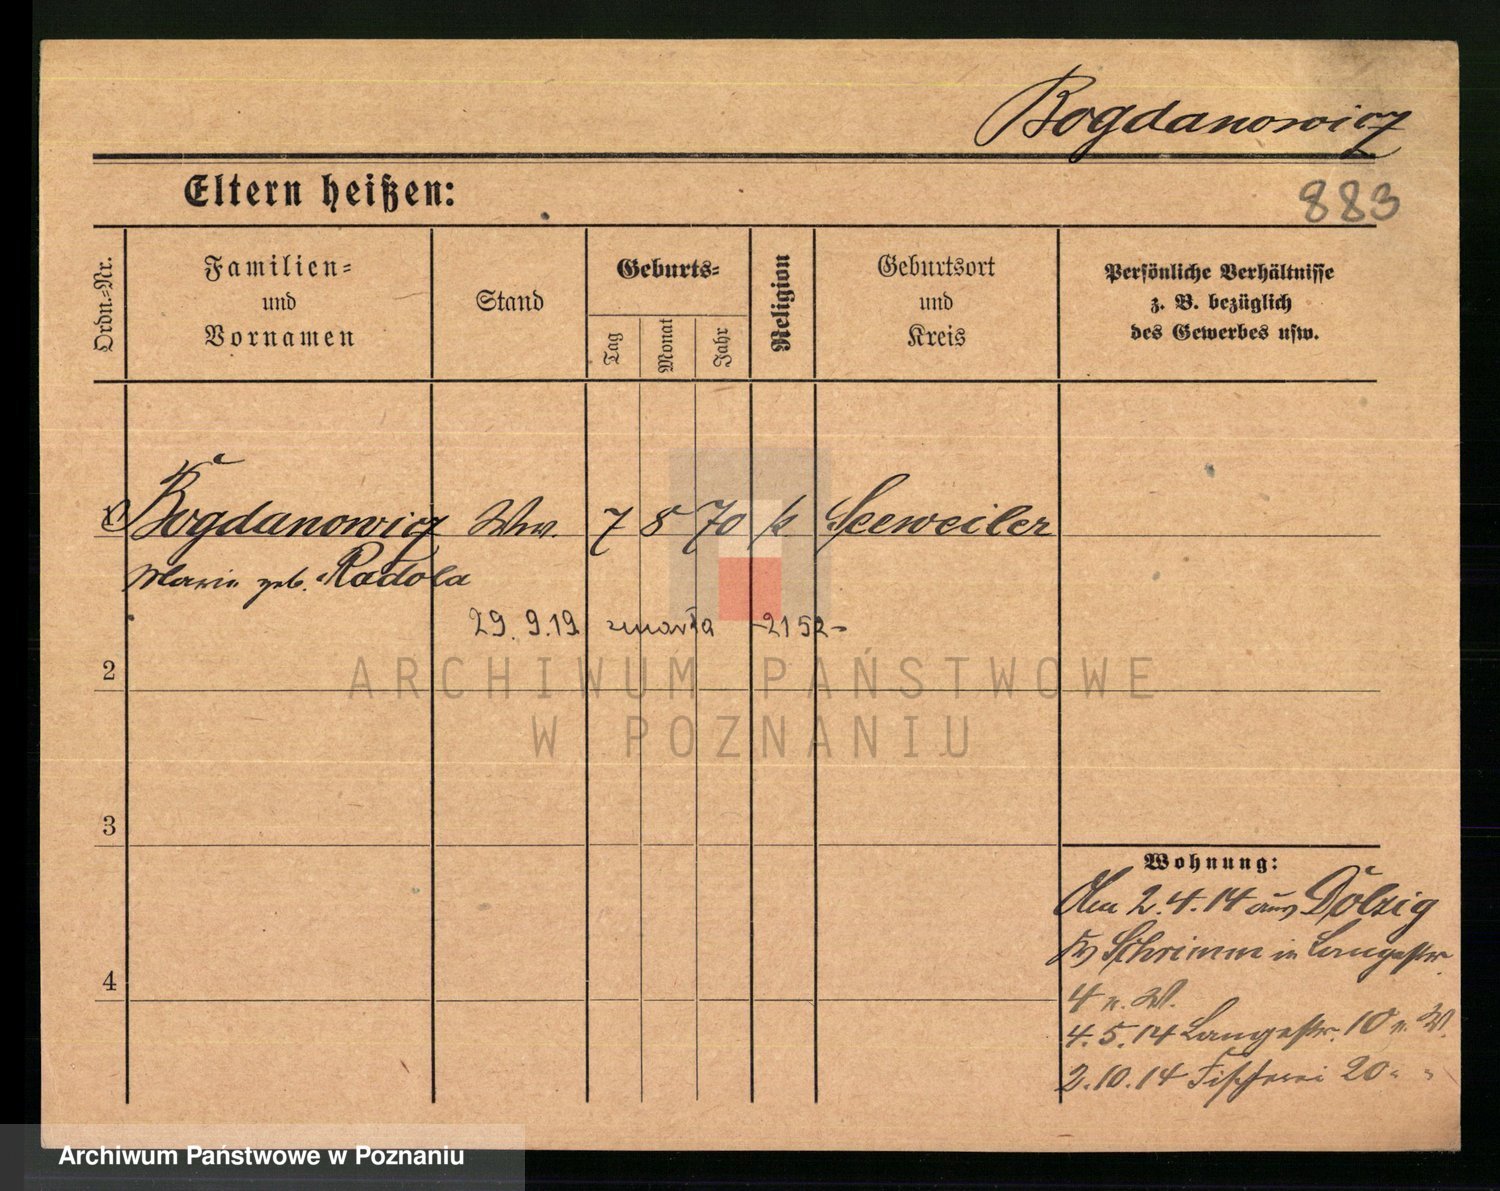 Bogdanowicz
Eltern heißen:
883
Ordn.-Nr.
Familien-
und
Vornamen
Stand
Geburts-
Tag
Monat
Jahr
Religion
Geburtsort
und
Kreis
Persönliche Verhältnisse
z. B. bezüglich
des Gewerbes usw.
1 Bogdanowicz Ww. 7 8 70 k. Seeweiler
Marie geb. Radola
29. 9. 19 zmarła -2152-
2
ARCHIWUM PAŃSTWOWE
W POZNANIU
3
4
Wohnung:
Am 2.4.14 aus Dolzig
Schrimm in Langestr.
4 n. W.
4.5.14 Langestr. 10 n. W.
2.10.14 Fischerei 20 " "
Archiwum Państwowe w Poznaniu